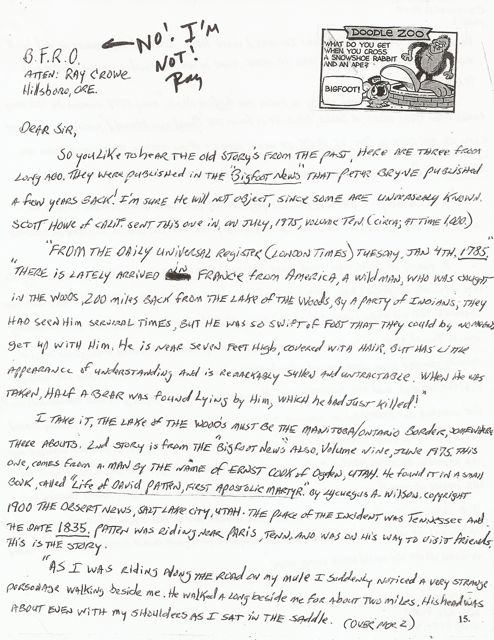 NO! I'M
NOT!
Ray
B.F.R.O.
ATTEN: RAY CROWE
Hillsboro, ORE.
DOODLE ZOO
WHAT DO YOU GET
WHEN YOU CROSS
A SNOWSHOE RABBIT
AND AN APE?
BIGFOOT!
DEAR SIR,
So you LIKE to HEAR THE OLD STORY'S FROM THE PAST, HERE ARE THREE FROM
LONG AGO. THEY WERE PUBLISHED IN THE "BIGFOOT NEWS" THAT PETER BRYNE PUBLISHED
A FEW YEARS BACK! I'M SURE HE WILL NOT OBJECT, SINCE SOME ARE UNIVERSALY KNOWN.
SCOTT HOWE OF CALIF. SENT THIS ONE IN, ON JULY, 1975, VOLUME TEN. (CIRTA; AT TIME 1,000.)
"FROM THE DAILY UNIVERSAL REGISTER (LONDON TIMES) TUESDAY, JAN 4TH, 1785,
"THERE IS LATELY ARRIVED IN FRANCE FROM AMERICA, A WILD MAN, WHO WAS CAUGHT
IN THE WOODS, 200 MILES BACK FROM THE LAKE OF THE WOODS, BY A PARTY OF INDIANS; THEY
HAD SEEN HIM SERVIRAL TIMES, BUT HE WAS SO SWIFT OF FOOT THAT THEY COULD BY NO MEANS
GET UP WITH HIM. HE IS NEAR SEVEN FEET HIGH, COVERED WITH HAIR, BUT HAS LITTLE
APPEARANCE OF UNDERSTANDING AND IS REMARKABLY SULLEN AND UNTRACTABLE. WHEN HE WAS
TAKEN, HALF A BEAR WAS FOUND LYING BY HIM, WHICH HE HAD JUST KILLED!"
I TAKE IT, THE LAKE OF THE WOODS MUST BE THE MANITOBA/ONTARIO BORDER, SOMEWHERE
THERE ABOUTS. 2ND STORY IS FROM THE "BIGFOOT NEWS" ALSO, VOLUME NINE, JUNE 1975, THIS
ONE, COMES FROM A MAN BY THE NAME OF ERNST COOK OF OGDEN, UTAH. HE FOUND IT IN A SMALL
BOOK, CALLED "LIFE OF DAVID PATTEN, FIRST APOSTOLIC MARTYR." BY LYCURGUS A. WILSON. COPYRIGHT
1900 THE DESERT NEWS, SALT LAKE CITY, UTAH. THE PLACE OF THE INCIDENT WAS TENNESSEE AND
THE DATE 1835. PATTEN WAS RIDING NEAR PARIS, TENN. AND WAS ON HIS WAY TO VISIT FRIENDS,
THIS IS THE STORY.
"AS I WAS RIDING ALONG THE ROAD ON MY MULE I SUDDENLY NOTICED A VERY STRANGE
PERSONAGE WALKING BESIDE ME. HE WALKED A LONG BESIDE ME FOR ABOUT TWO MILES. HIS HEAD WAS
ABOUT EVEN WITH MY SHOULDERS AS I SAT IN THE SADDLE. (OVER 2)
15.